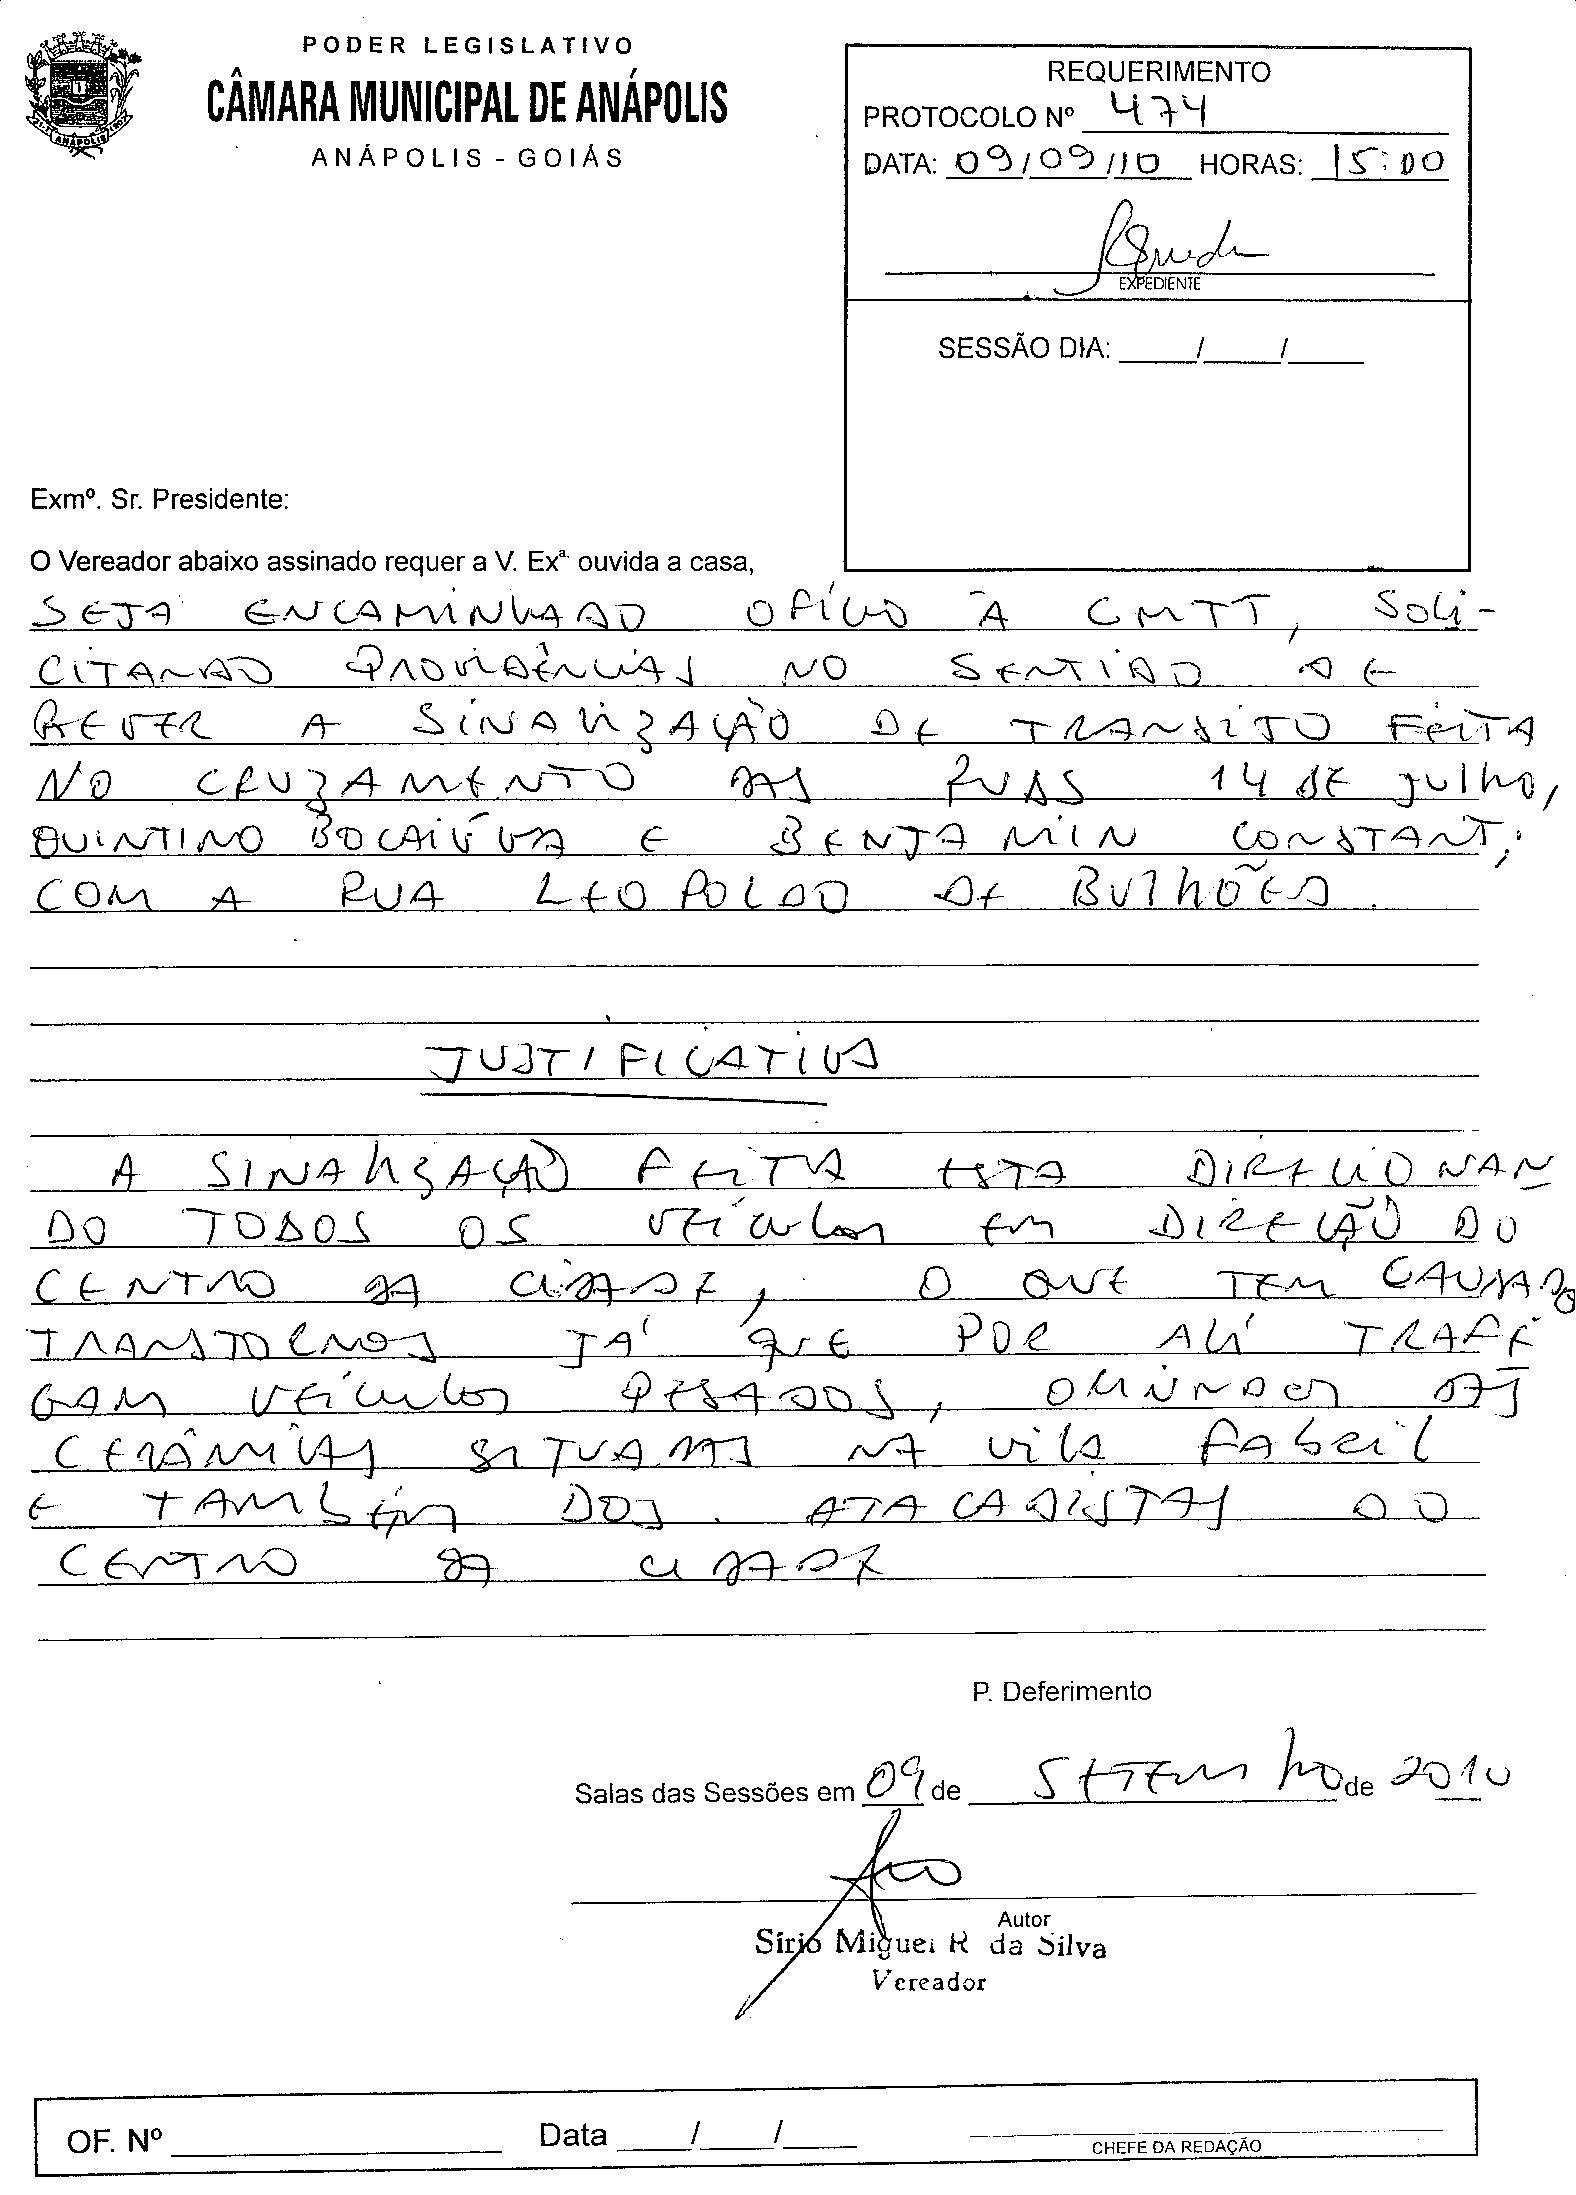 PODER LEGISLATIVO
CÂMARA MUNICIPAL DE ANÁPOLIS
ANÁPOLIS - GOIÁS
ANÁPOLIS
REQUERIMENTO
PROTOCOLO Nº 474
DATA: 09/09/10 HORAS: 15:00
EXPEDIENTE
SESSÃO DIA: ____/____/____
Exmº. Sr. Presidente:
O Vereador abaixo assinado requer a V. Exª. ouvida a casa,
SEJA ENCAMINHADO OFÍCIO À CMTT, SOLI-
CITANDO PROVIDÊNCIAS NO SENTIDO DE
REVER A SINALIZAÇÃO DE TRANSITO FEITA
NO CRUZAMENTO DAS RUAS 14 DE JULHO,
QUINTINO BOCAIÚVA E BENJAMIN CONSTANT,
COM A RUA LEOPOLDO DE BULHÕES.
JUSTIFICATIVA
A SINALIZAÇÃO FEITA ESTA DIRECIONAN
DO TODOS OS VEÍCULOS EM DIREÇÃO DO
CENTRO DA CIDADE, O QUE TEM CAUSADO
TRANSTORNOS JÁ QUE POR ALI TRAFE
GAM VEÍCULOS PESADOS, ORIUNDOS DAS
CERÂMICAS SITUADAS NA VILA FABRIL
E TAMBÉM DOS ATACADISTAS DO
CENTRO DA CIDADE
P. Deferimento
Salas das Sessões em 09 de SETEMBRO de 2010
Autor
Sírio Miguel R da Silva
Vereador
OF. Nº ____ Data ____/____/____
CHEFE DA REDAÇÃO